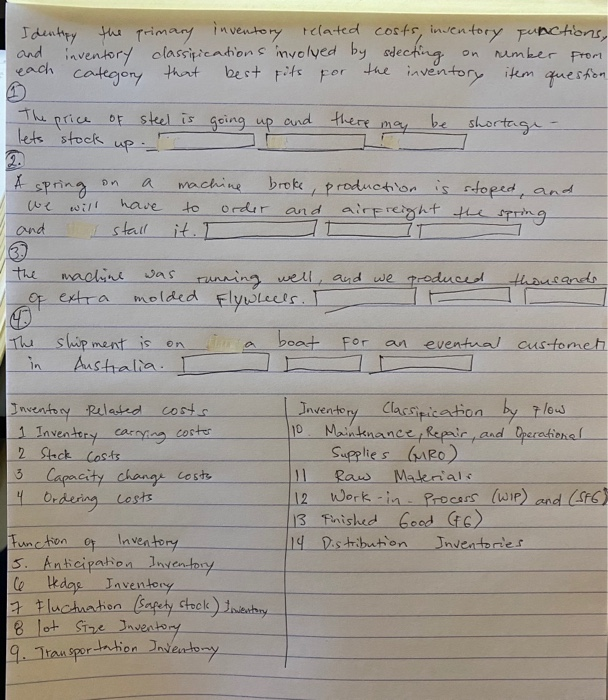 Identify the primary inventory related costs, inventory functions,
and inventory classifications involved by selecting an number from
each category that best fits for the inventory item question
1
The price of steel is going up and there may be shortage -
lets stock up.
2.
A spring on a machine broke, production is stoped, and
we will have to order and airfreight the spring
and stall it.
3.
The machine was running well, and we produced thousands
of extra molded Flywheels.
4.
The shipment is on a boat for an eventual customer
in Australia.
Inventory Related costs
1 Inventory carrying costs
2 Stock Costs
3 Capacity change costs
4 Ordering costs
Function of Inventory
5. Anticipation Inventory
6 Hedge Inventory
7 Fluctuation (Safety Stock) Inventory
8 lot Size Inventory
9. Transportation Inventory
Inventory Classification by Flow
10. Maintenance, Repair, and Operational
Supplies (MRO)
11 Raw Materials
12 Work-in-Process (WIP) and (SFG)
13 Finished Good (FG)
14 Distribution Inventories